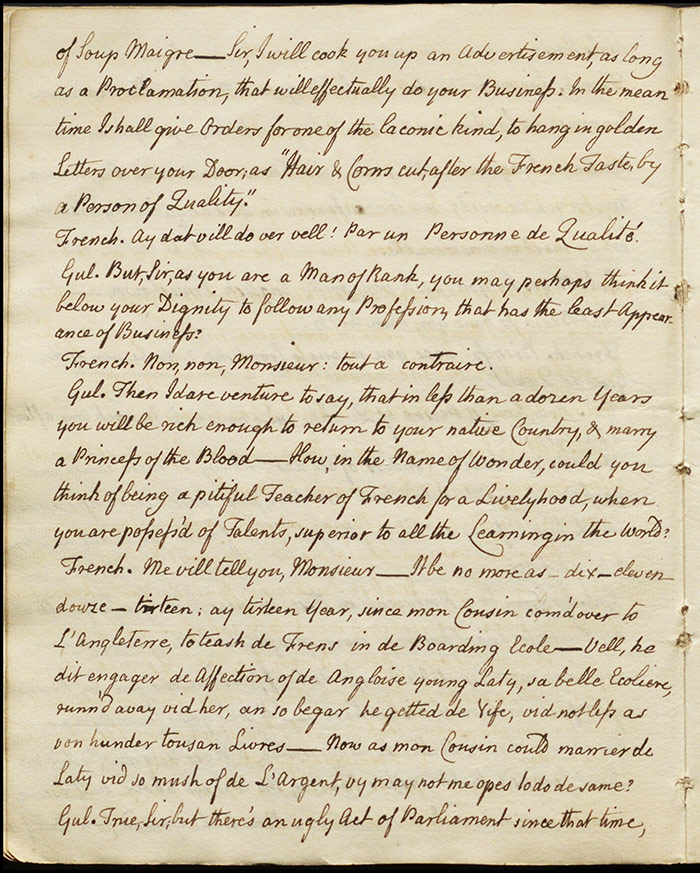 of Soup Maigre — Sir, I will cook you up an Advertisement, as long
as a Proclamation, that will effectually do your Business. In the mean
time I shall give Orders for one of the laconic kind, to hang in golden
Letters over your Door; as "Hair & Corns cut, after the French Taste, by
a Person of Quality."
French. Ay dat vill do ver vell! Par un Personne de Qualité.
Gul. But, Sir, as you are a Man of Rank, you may perhaps think it
below your Dignity to follow any Profession, that has the least Appear-
ance of Business?
French. Non, non, Monsieur: tout a contraire.
Gul. Then I dare venture to say, that in less than a dozen Years
you will be rich enough to return to your native Country, & marry
a Princess of the Blood — How, in the Name of Wonder, could you
think of being a pitiful Teacher of French for a Livelyhood, when
you are possess'd of Talents, superior to all the Learning in the World?
French. Me vill tell you, Monsieur — It be no more as – dix – eleven –
dowze – tirteen; ay tirteen Year, since mon Cousin com'd over to
L'Angleterre, to teash de Frens in de Boarding Ecole — Vell, he
dit engager de Affection of de Angloise young Laty, sa belle Ecoliere,
runn'd avay vid her, an so begar he getted de Vife, vid not less as
von hunder tousan Livres — Now as mon Cousin could marrier de
Laty vid so mush of de L'Argent, vy may not me opes to do de same?
Gul. True, Sir; but there's an ugly Act of Parliament since that time,